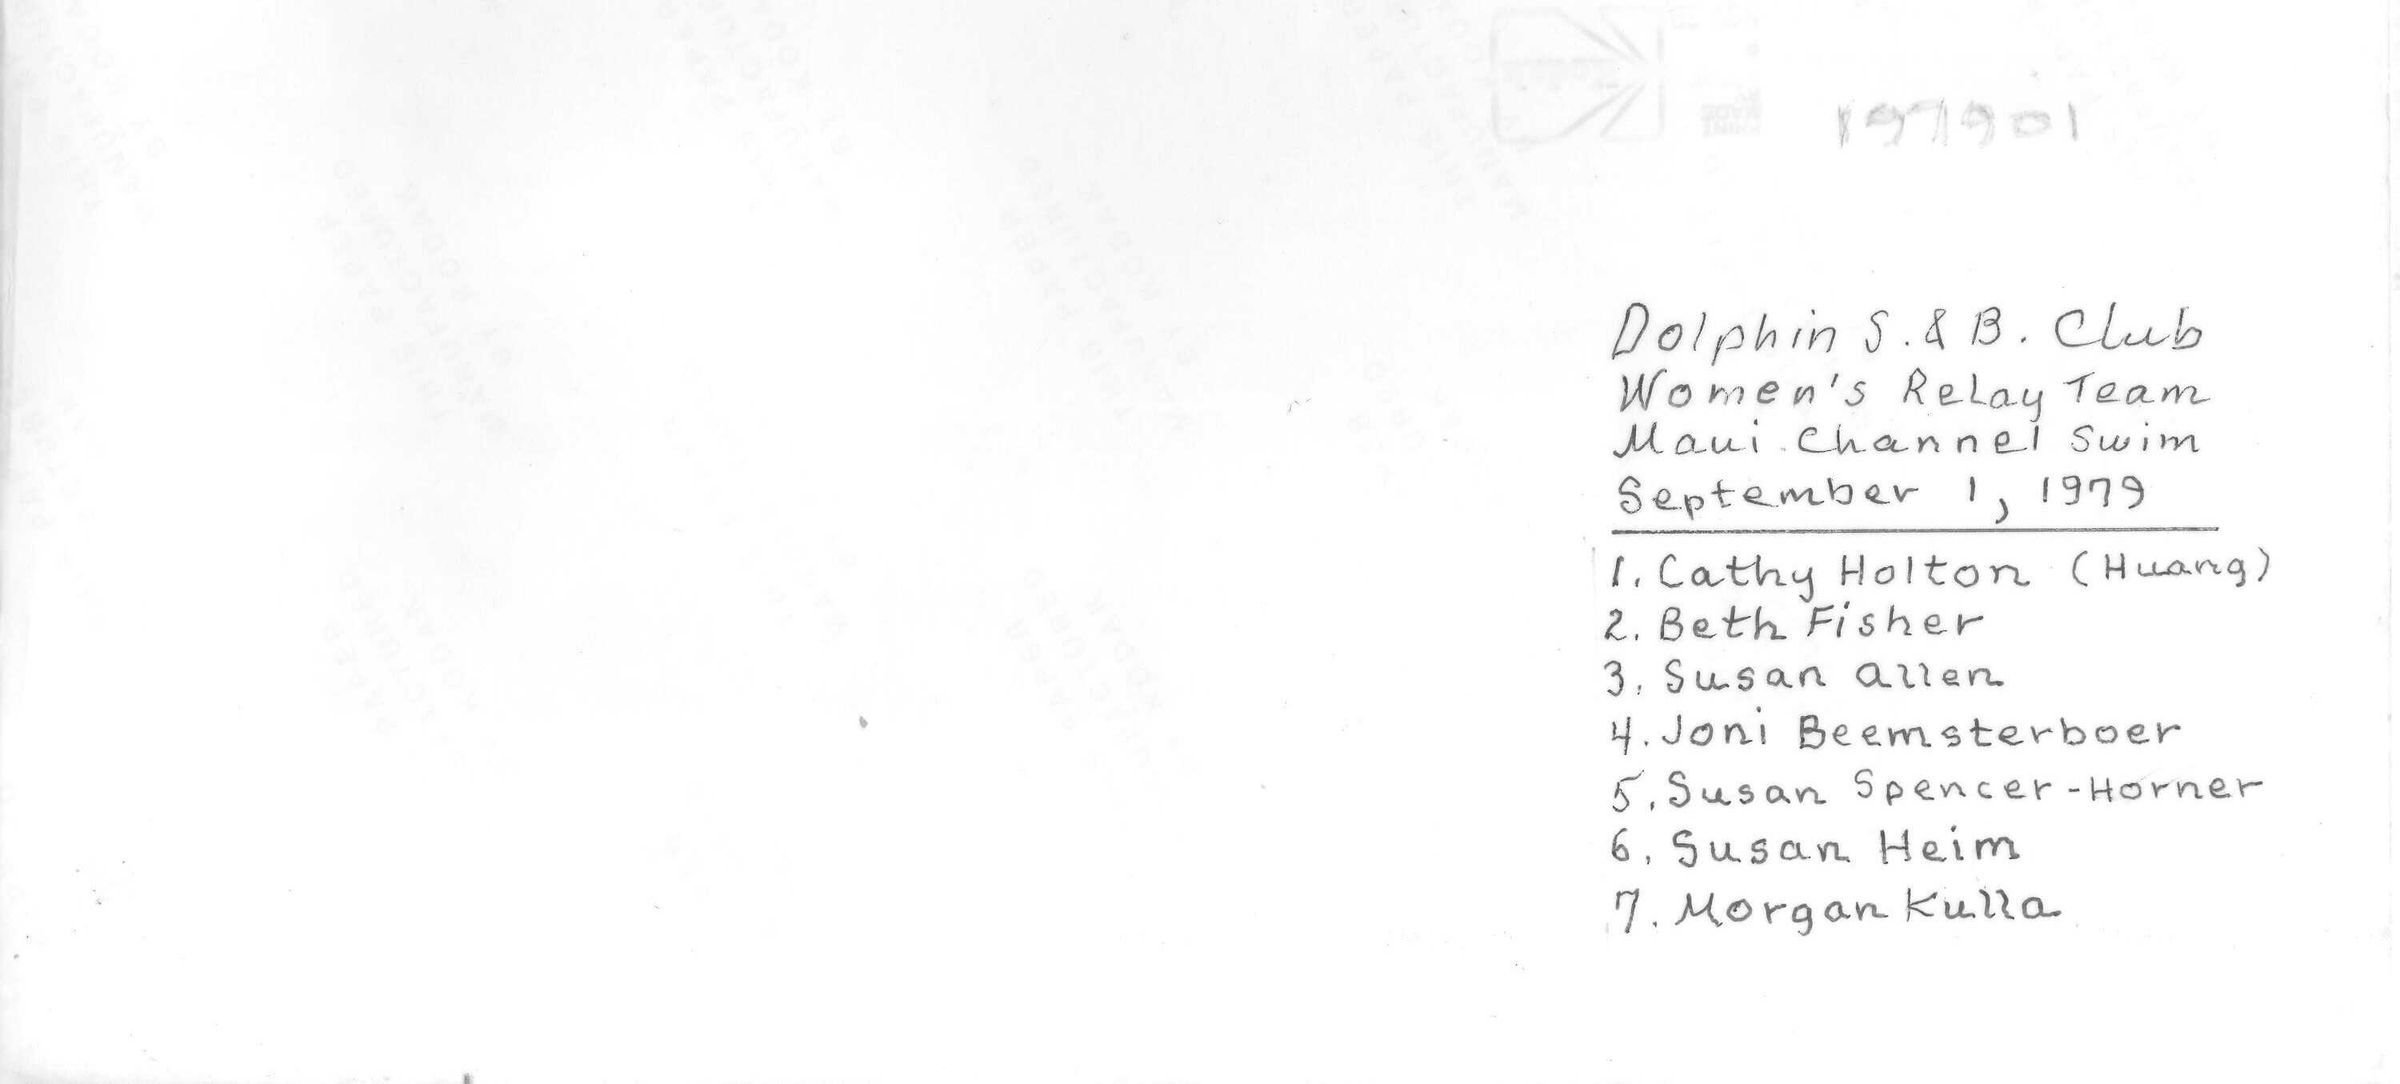 197901
Dolphin S. & B. Club
Women's Relay Team
Maui Channel Swim
September 1, 1979
1. Cathy Holton (Huang)
2. Beth Fisher
3. Susan Allen
4. Joni Beemsterboer
5. Susan Spencer-Horner
6. Susan Heim
7. Morgan Kulla